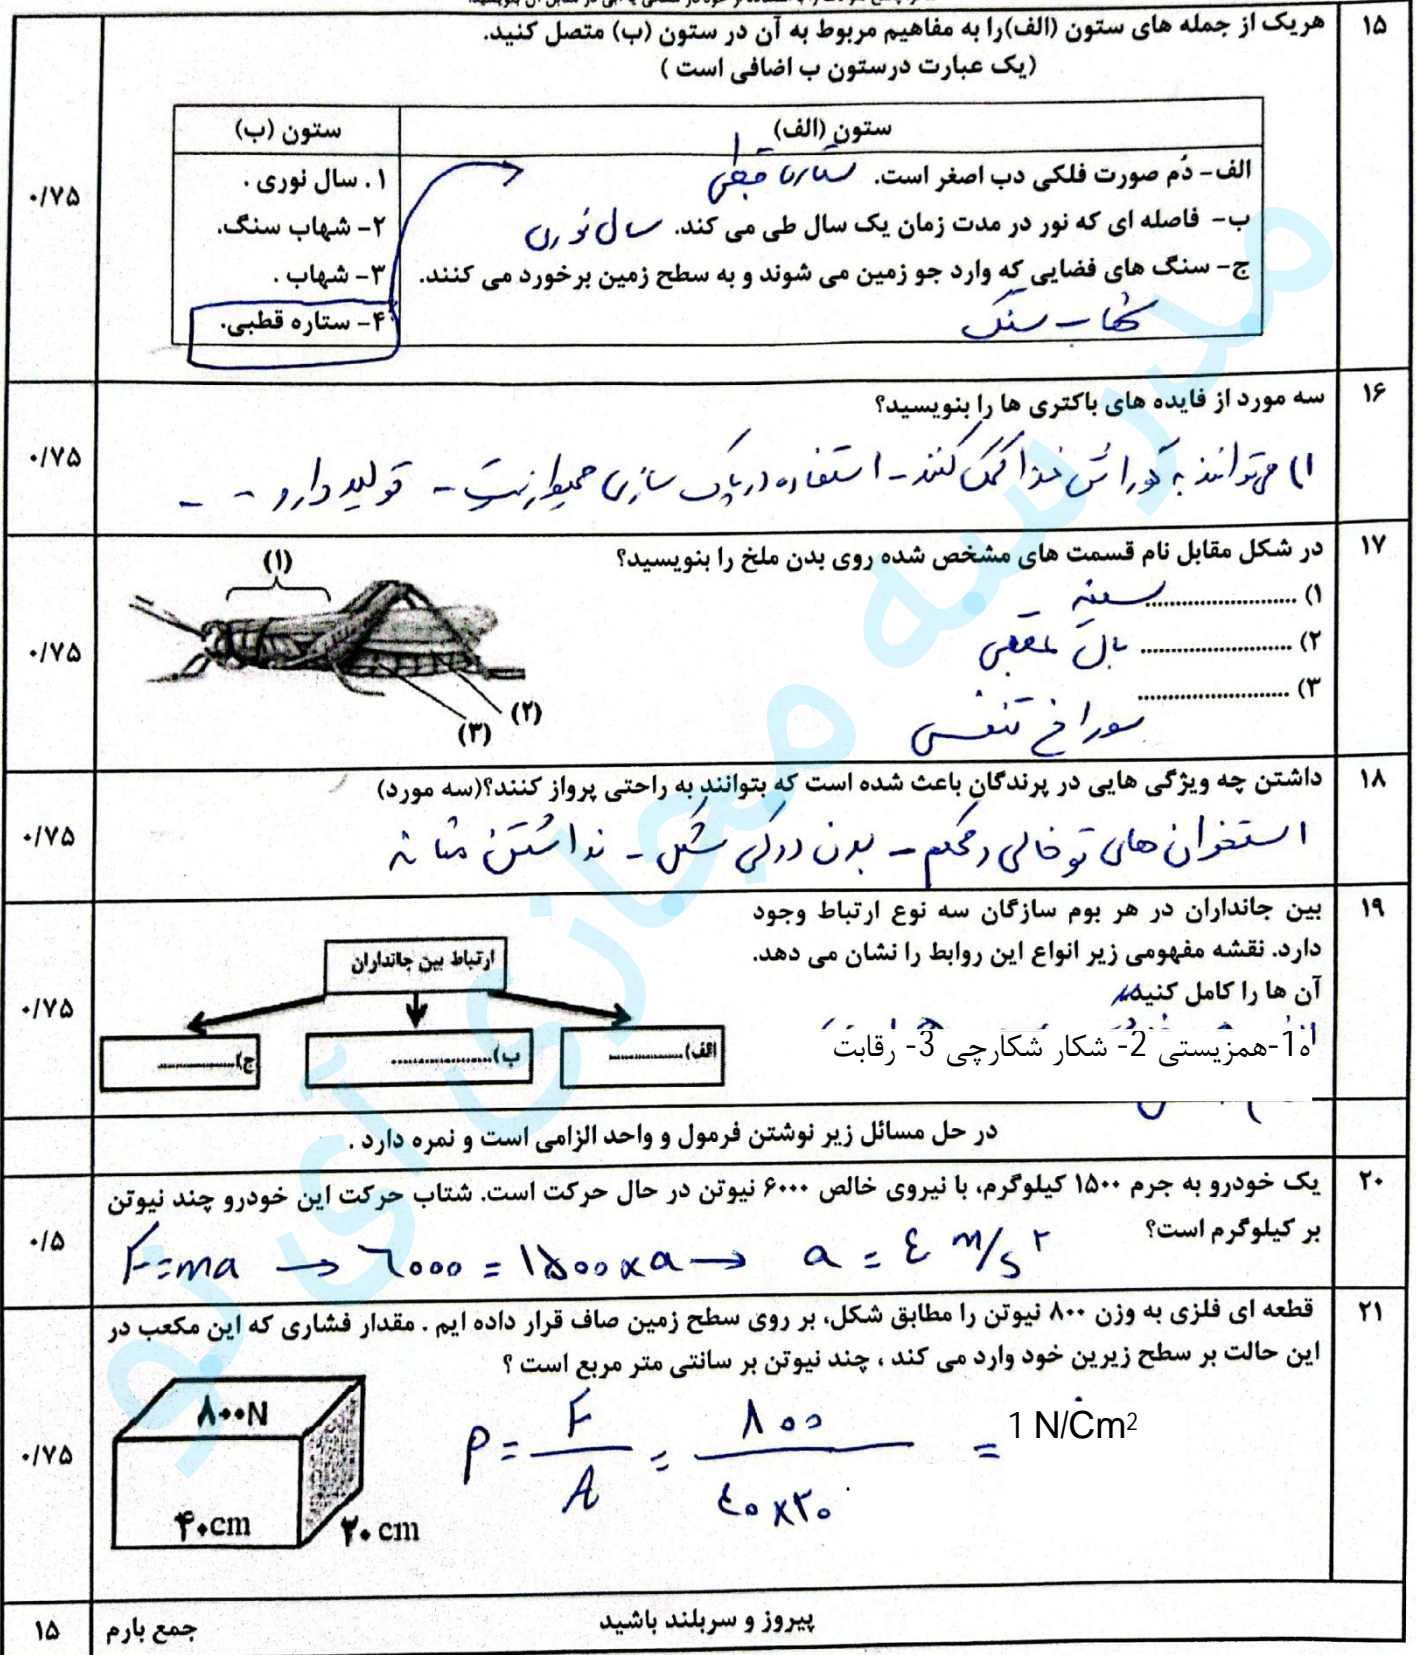 ۱۵
هریک از جمله های ستون (الف)را به مفاهیم مربوط به آن در ستون (ب) متصل کنید.
(یک عبارت درستون ب اضافی است )
۰/۷۵
ستون (الف)
ستون (ب)
الف- دُم صورت فلکی دب اصغر است. ستاره قطبی
۱. سال نوری .
ب- فاصله ای که نور در مدت زمان یک سال طی می کند. سال نوری
۲- شهاب سنگ.
ج- سنگ های فضایی که وارد جو زمین می شوند و به سطح زمین برخورد می کنند.
۳- شهاب .
شهاب سنگ
۴- ستاره قطبی.
۱۶
سه مورد از فایده های باکتری ها را بنویسید؟
۰/۷۵
۱) می توانند به گوارش غذا کمک کنند - استفاده در پاک سازی محیط زیست - تولید دارو - -
۱۷
در شکل مقابل نام قسمت های مشخص شده روی بدن ملخ را بنویسید؟
(۱)
۱) .......................... سینه
۲) .......................... بال عقبی
۰/۷۵
۳) ..........................
سوراخ تنفسی
(۲)
(۳)
۱۸
داشتن چه ویژگی هایی در پرندگان باعث شده است که بتوانند به راحتی پرواز کنند؟(سه مورد)
۰/۷۵
استخوان های تو خالی و محکم - بدن دوکی شکل - نداشتن مثانه
۱۹
بین جانداران در هر بوم سازگان سه نوع ارتباط وجود
دارد. نقشه مفهومی زیر انواع این روابط را نشان می دهد.
آن ها را کامل کنید.
۰/۷۵
ارتباط بین جانداران
الف)................
ب)....................
ج)................
1-همزیستی 2- شکار شکارچی 3- رقابت
در حل مسائل زیر نوشتن فرمول و واحد الزامی است و نمره دارد .
۲۰
یک خودرو به جرم ۱۵۰۰ کیلوگرم، با نیروی خالص ۶۰۰۰ نیوتن در حال حرکت است. شتاب حرکت این خودرو چند نیوتن
بر کیلوگرم است؟
۰/۵
F=ma → ٦٠٠٠ = ۱۵۰۰×a → a = ٤ m/s²
۲۱
قطعه ای فلزی به وزن ۸۰۰ نیوتن را مطابق شکل، بر روی سطح زمین صاف قرار داده ایم . مقدار فشاری که این مکعب در
این حالت بر سطح زیرین خود وارد می کند ، چند نیوتن بر سانتی متر مربع است ؟
۰/۷۵
۸۰۰N
۴۰cm
۲۰ cm
P = F/A = ۸۰۰/٤۰×۲۰ = 1 N/Cm²
۱۵
جمع بارم
پیروز و سربلند باشید
مدرسه مجازی آی نو